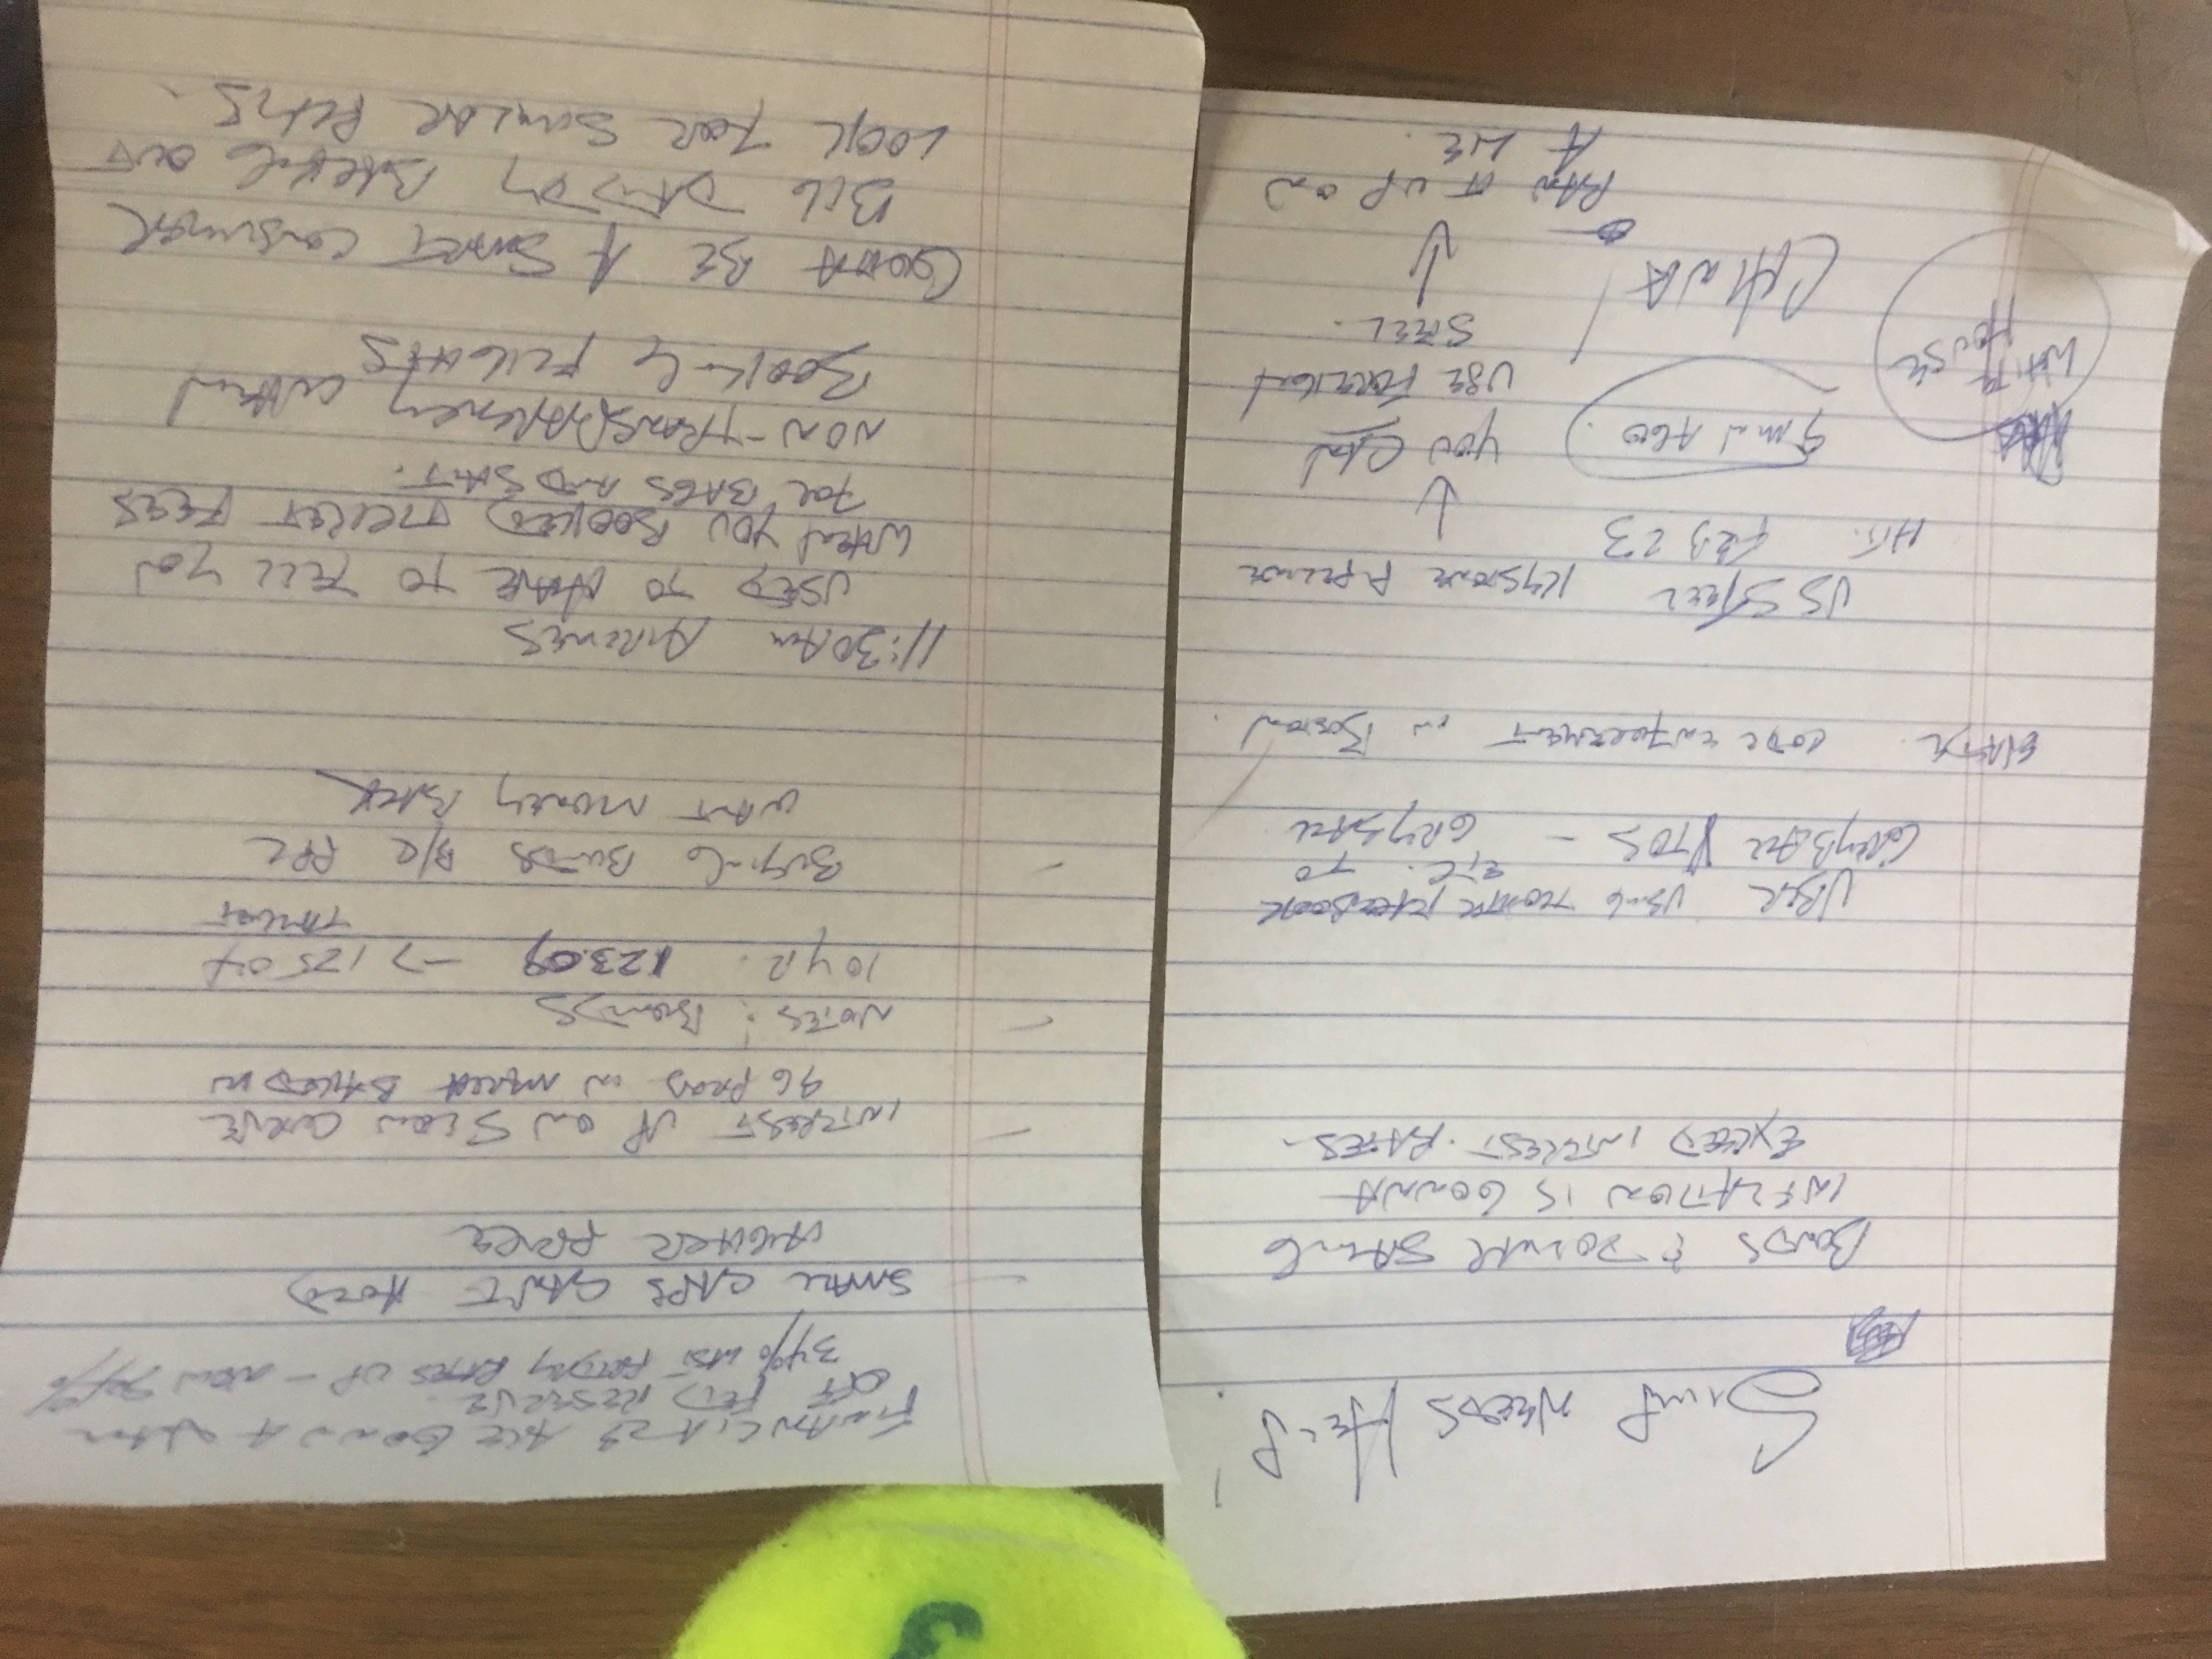 3
Simp NEEDS HELP!
BONDS & DOLLAR SAYING
INFLATION IS GONNA
EXCEED INTEREST RATES.
UBER USING FACEBOOK
ETC. TO
GREYBALL VTOS - GRYBALL
EVADE CODE ENFOREMENT IN BOSTON.
US STEEL KYSTONE PIPELINE
HIT. FEB 23
↓
5 MIN AGO. YOU CAN
WHITE HOUSE
USE FOREIGN
STEEL.
CHINA!
↓
RAN IT UP ON
A LIE.
FINANCIALS ARE GONNA
OFF FED RESERVE.
34% LAST FRIDAY RATES UP - NOW
- SMALL CAPS CAN'T HOLD
HIGHER PRICE
- INTREST UP ON SLOW CURVE
96 PROB IN MARCH BAKED IN
- NOTES & BONDS
10 YR. 123.09 → 125 04
TARGET
- BUYING BONDS B/C PPL
WANT MONEY BACK
11:30 AM AIRLINES
USED TO HAVE TO TELL YOU
WHEN YOU BOOKED TICKET FEES
FOR BAGS AND SAIT.
NON-TRANSPARENCY WHEN
BOOKING FLIGHTS
GOTTA BE A SMART CONSUMER
BIG DADDY BACKING OUT
LOOK FOR SIMILAR PLAYS.